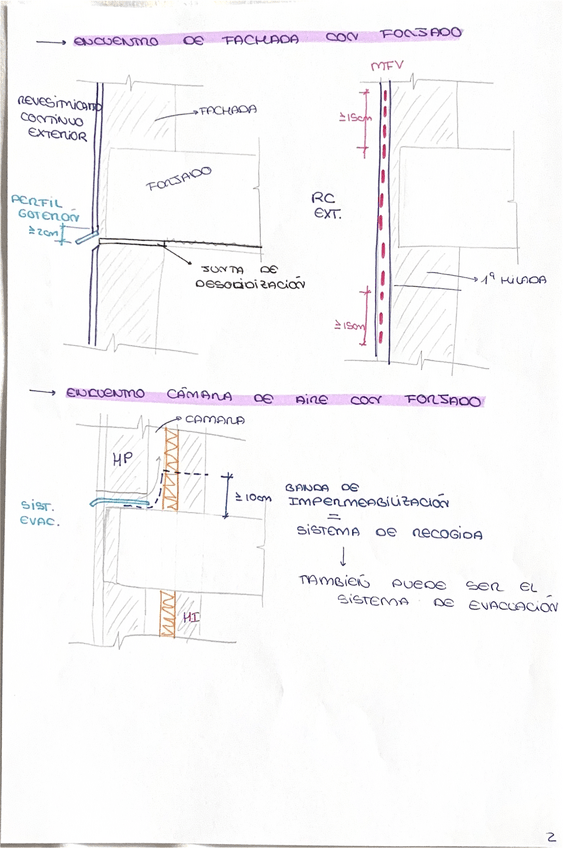 → ENCUENTRO DE FACHADA CON FORJADO
MFV
REVESTIMIENTO
CONTÍNUO
EXTERIOR
FACHADA
≥15cm
FORJADO
RC
EXT.
PERFIL
GOTERÓN
≥2cm
JUNTA DE
DESOLIDIZACIÓN
1ª HILADA
≥15cm
→ ENCUENTRO CÁMARA DE AIRE CON FORJADO
CAMARA
HP
≥10cm
SIST.
EVAC.
BANDA DE
IMPERMEABILIZACIÓN
=
SISTEMA DE RECOGIDA
↓
TAMBIEÑ PUEDE SER EL
SISTEMA DE EVACUACIÓN
HI
2